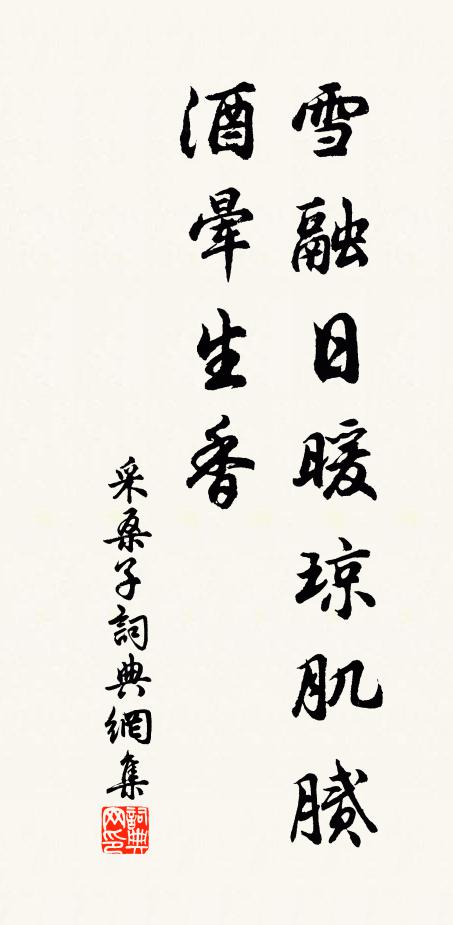 雪融日暖琼肌膩
酒暈生香
采桑子詞典網集
詞典网印